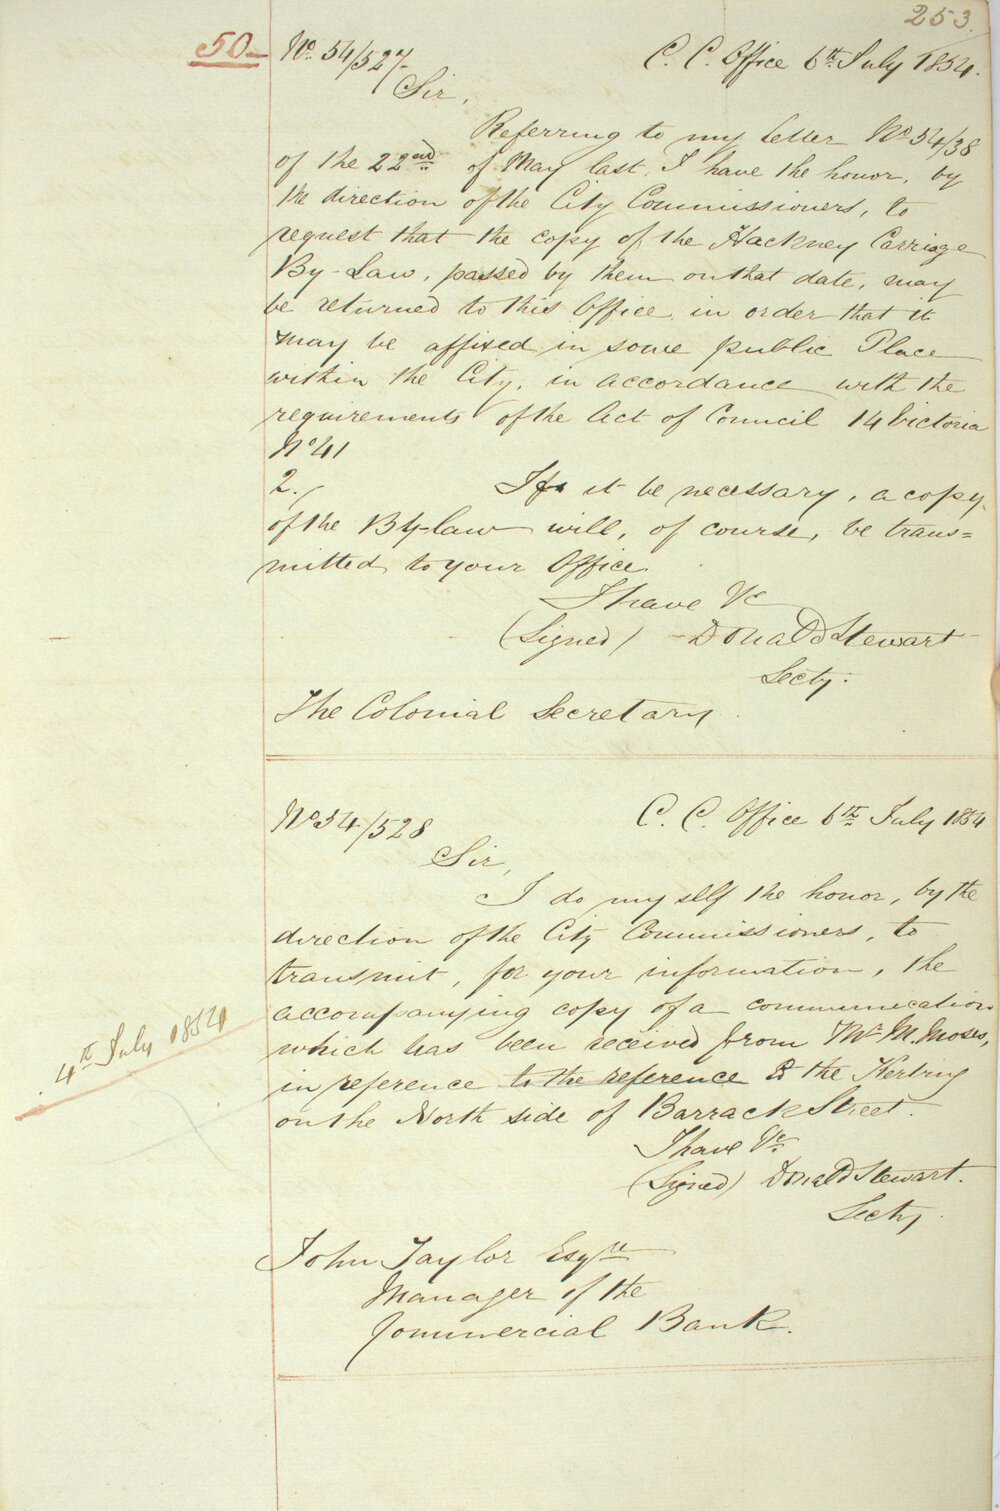 253.
50-
No. 54/527 C. C. Office 6th July 1854.
Sir,
Referring to my letter No 54/38
of the 22nd of May last, I have the honor, by
the direction of the City Commissioners, to
request that the copy of the Hackney Carriage
By-Law, passed by them on that date, may
be returned to this Office, in order that it
may be affixed in some public Place
within the City, in accordance with the
requirements of the Act of Council 14 Victoria
No 41
2./ If it be necessary, a copy
of the By-law will, of course, be trans=
mitted to your Office.
I have &c
(Signed) Donald Stewart
Secty.
The Colonial Secretary.
No 54/528 C. C. Office 6th July 1854
Sir,
I do myself the honor, by the
direction of the City Commissioners, to
transmit, for your information, the
accompanying copy of a communication
4th July 1854
which has been received from Mr M. Moses,
in reference to the reference to the Kerbing
on the North side of Barrack Street.
I have &c.
(Signed) Donald Stewart.
Secty.
John Taylor Esqre
Manager of the
Commercial Bank.